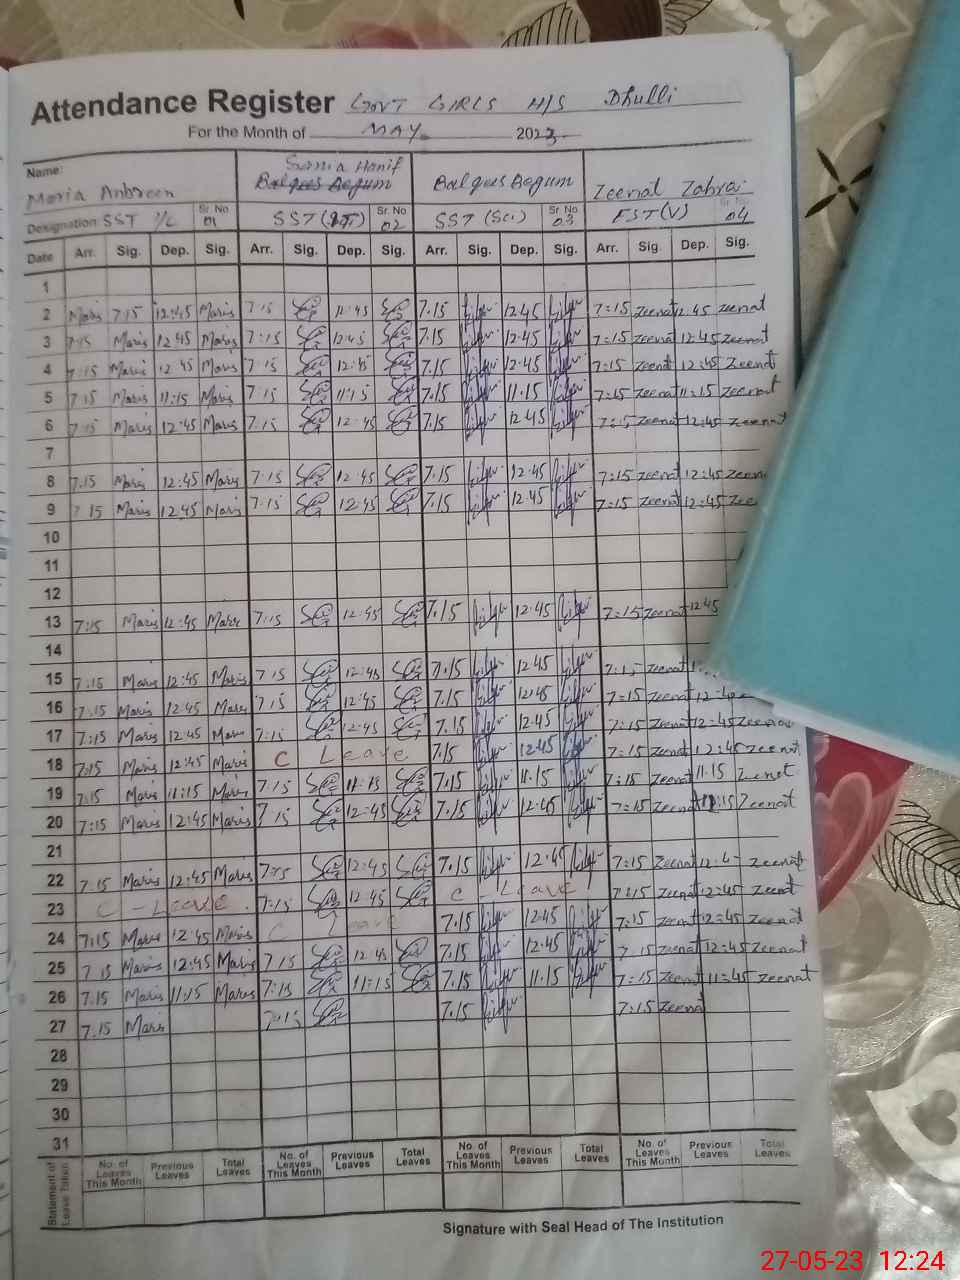 Attendance Register GOVT GIRLS H/S Dhulli
For the Month of MAY 2023
Name: Maria Ambreen Sonia Hanif Balqees Begum Balqees Begum Zeenat Zahra
Designation: SST I/C Sr. No 01 SST (IT) Sr. No 02 SST (Sci) Sr. No 03 EST(V) Sr. No 04
Date Arr. Sig. Dep. Sig. Arr. Sig. Dep. Sig. Arr. Sig. Dep. Sig. Arr. Sig. Dep. Sig.
1
2 Maris 7.15 12:45 Maris 7:15 7.15 12.45 7=15 zeenat 12.45 zeenat
3 7:15 Maris 12 45 Maris 7:15 12:45 7.15 12.45 7=15 zeenat 12:45 zeenat
4 7:15 Maris 12 45 Maris 7:15 12:45 7.15 12.45 7:15 zeenat 12:45 Zeenat
5 7 15 Maris 11:15 Maris 7:15 11:15 7.15 11.15 7:15 zeenat 11:15 zeenat
6 7:15 Maris 12:45 Maris 7:15 12:45 7.15 12.45 zeenat 12:45 zeenat
7
8 7.15 Maris 12:45 Maris 7:15 12:45 7.15 12.45 7:15 zeenat 12:45 zeen
9 7 15 Maris 12.45 Maris 7:15 12:45 7.15 12.45 7:15 zeenat 12:45 zee
10
11
12
13 7:15 Maris 12:45 Maris 7:15 12:45 7.15 12.45 7=15 zeenat 12:45
14
15 7:15 Maris 12:45 Maris 7:15 12:45 7.15 12.45 zeenat
16 7:15 Maris 12:45 Maris 7:15 12:45 7.15 12.45 7=15 zeenat
17 7:15 Maris 12:45 Maris 7:15 12:45 7.15 12.45 7:15 zeenat 12:45 zeenat
18 7:15 Maris 12:45 Maris C Leave 7.15 12.45 7:15 zeenat 12:45 zeenat
19 7:15 Maris 11:15 Maris 7:15 11:15 7.15 11.15 7:15 zeenat 11.15 zeenat
20 7:15 Maris 12:45 Maris 7:15 12:45 7.15 12.45 7:15 zeenat Zeenat
21
22 7.15 Maris 12:45 Maris 7:15 12:45 7.15 12.45 7:15 zeenat zeenat
23 C - Leave 7:15 12:45 C - Leave 7:15 zeenat 12:45 zeenat
24 7:15 Maris 12:45 Maris C Leave 7.15 12.45 7:15 zeenat 12:45 zeenat
25 7 15 Maris 12:45 Maris 7:15 12:45 7.15 12.45 7:15 zeenat 12:45 zeenat
26 7.15 Maris 11:15 Maris 7:15 11:15 7.15 11.15 7:15 zeenat 11:45 zeenat
27 7.15 Maris 7:15 7.15 7:15 zeenat
28
29
30
31
Statement of Leave Taken No. of Leaves This Month Previous Leaves Total Leaves No. of Leaves This Month Previous Leaves Total Leaves No. of Leaves This Month Previous Leaves Total Leaves No. of Leaves This Month Previous Leaves Total Leaves
Signature with Seal Head of The Institution
27-05-23 12:24